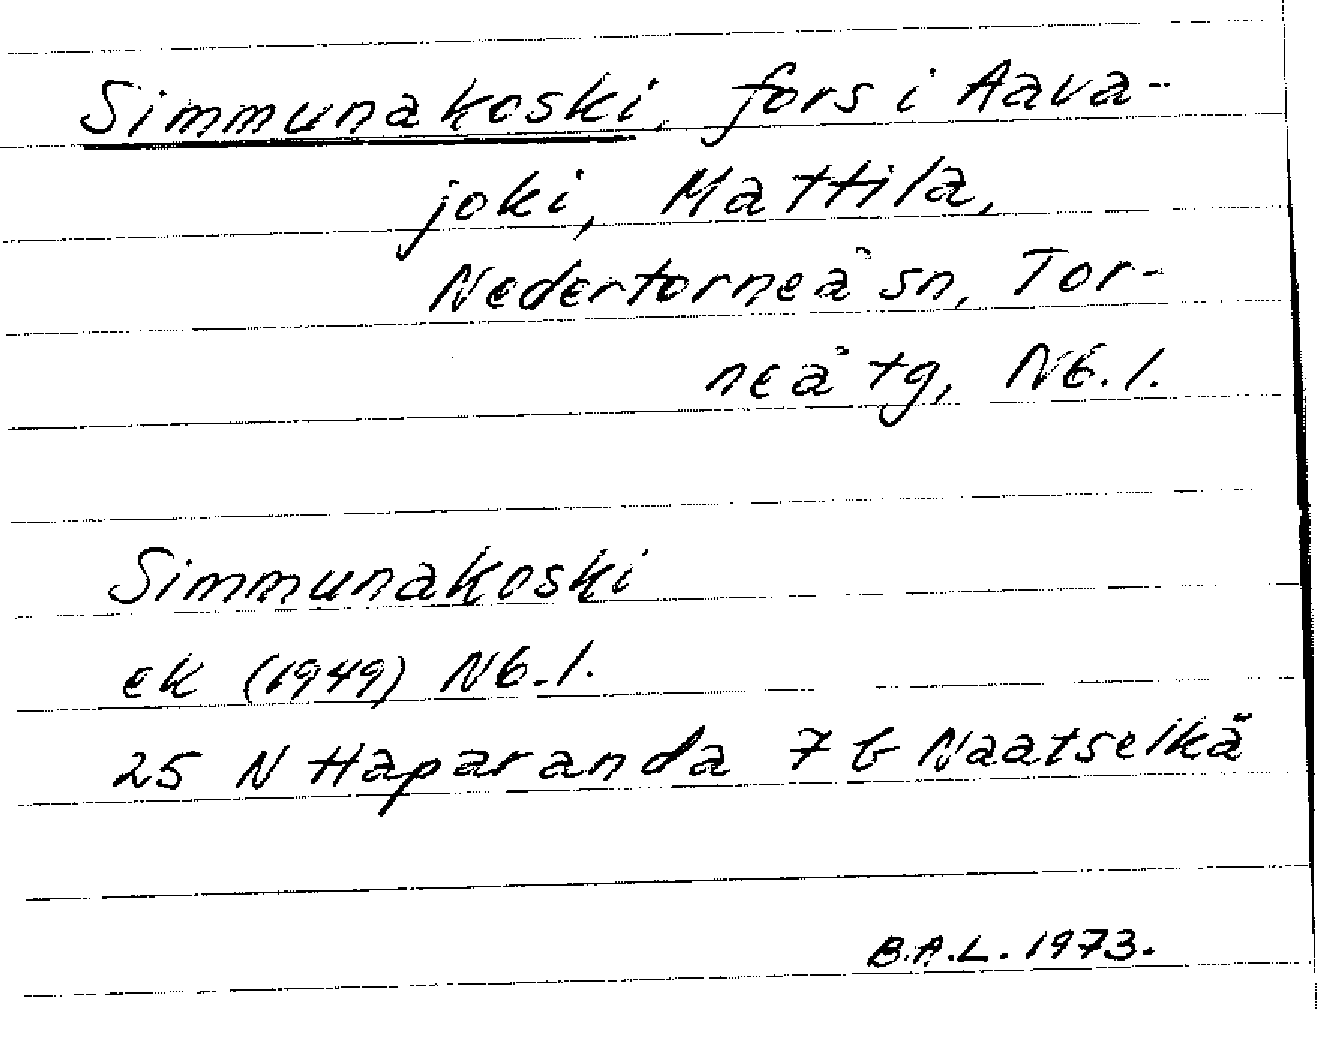 Simmunakoski, fors i Aava-
joki, Mattila,
Nedertorneå sn, Tor-
neå tg, Nb. l.
Simmunakoski
ek (1949) Nb. l.
25 N Haparanda 7 b Naatselkä
B.A.L. 1973.